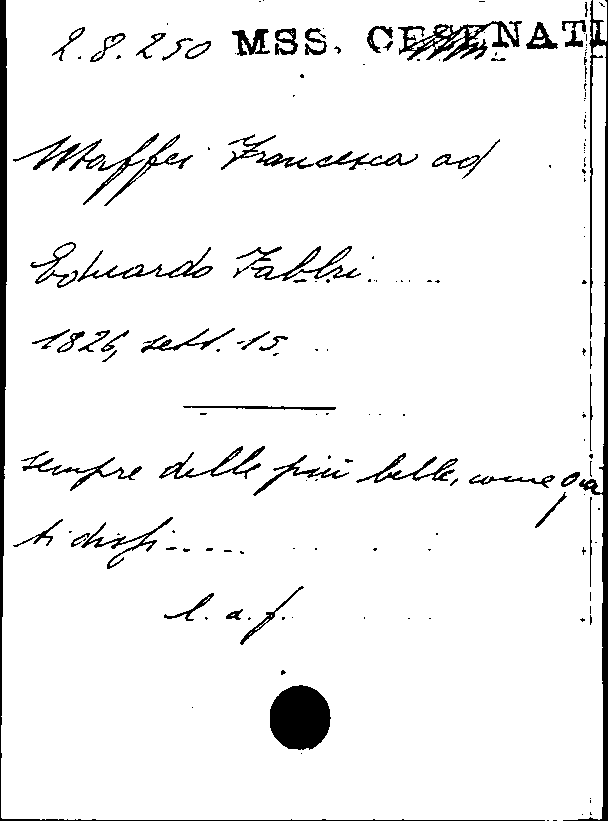 2.8.250 MSS. CESENATI
Maffei Francesca ad
Eduardo Fabbri
1826, sett. 15.
sempre delle più belle, come già
ti dissi.....
l. a. f.